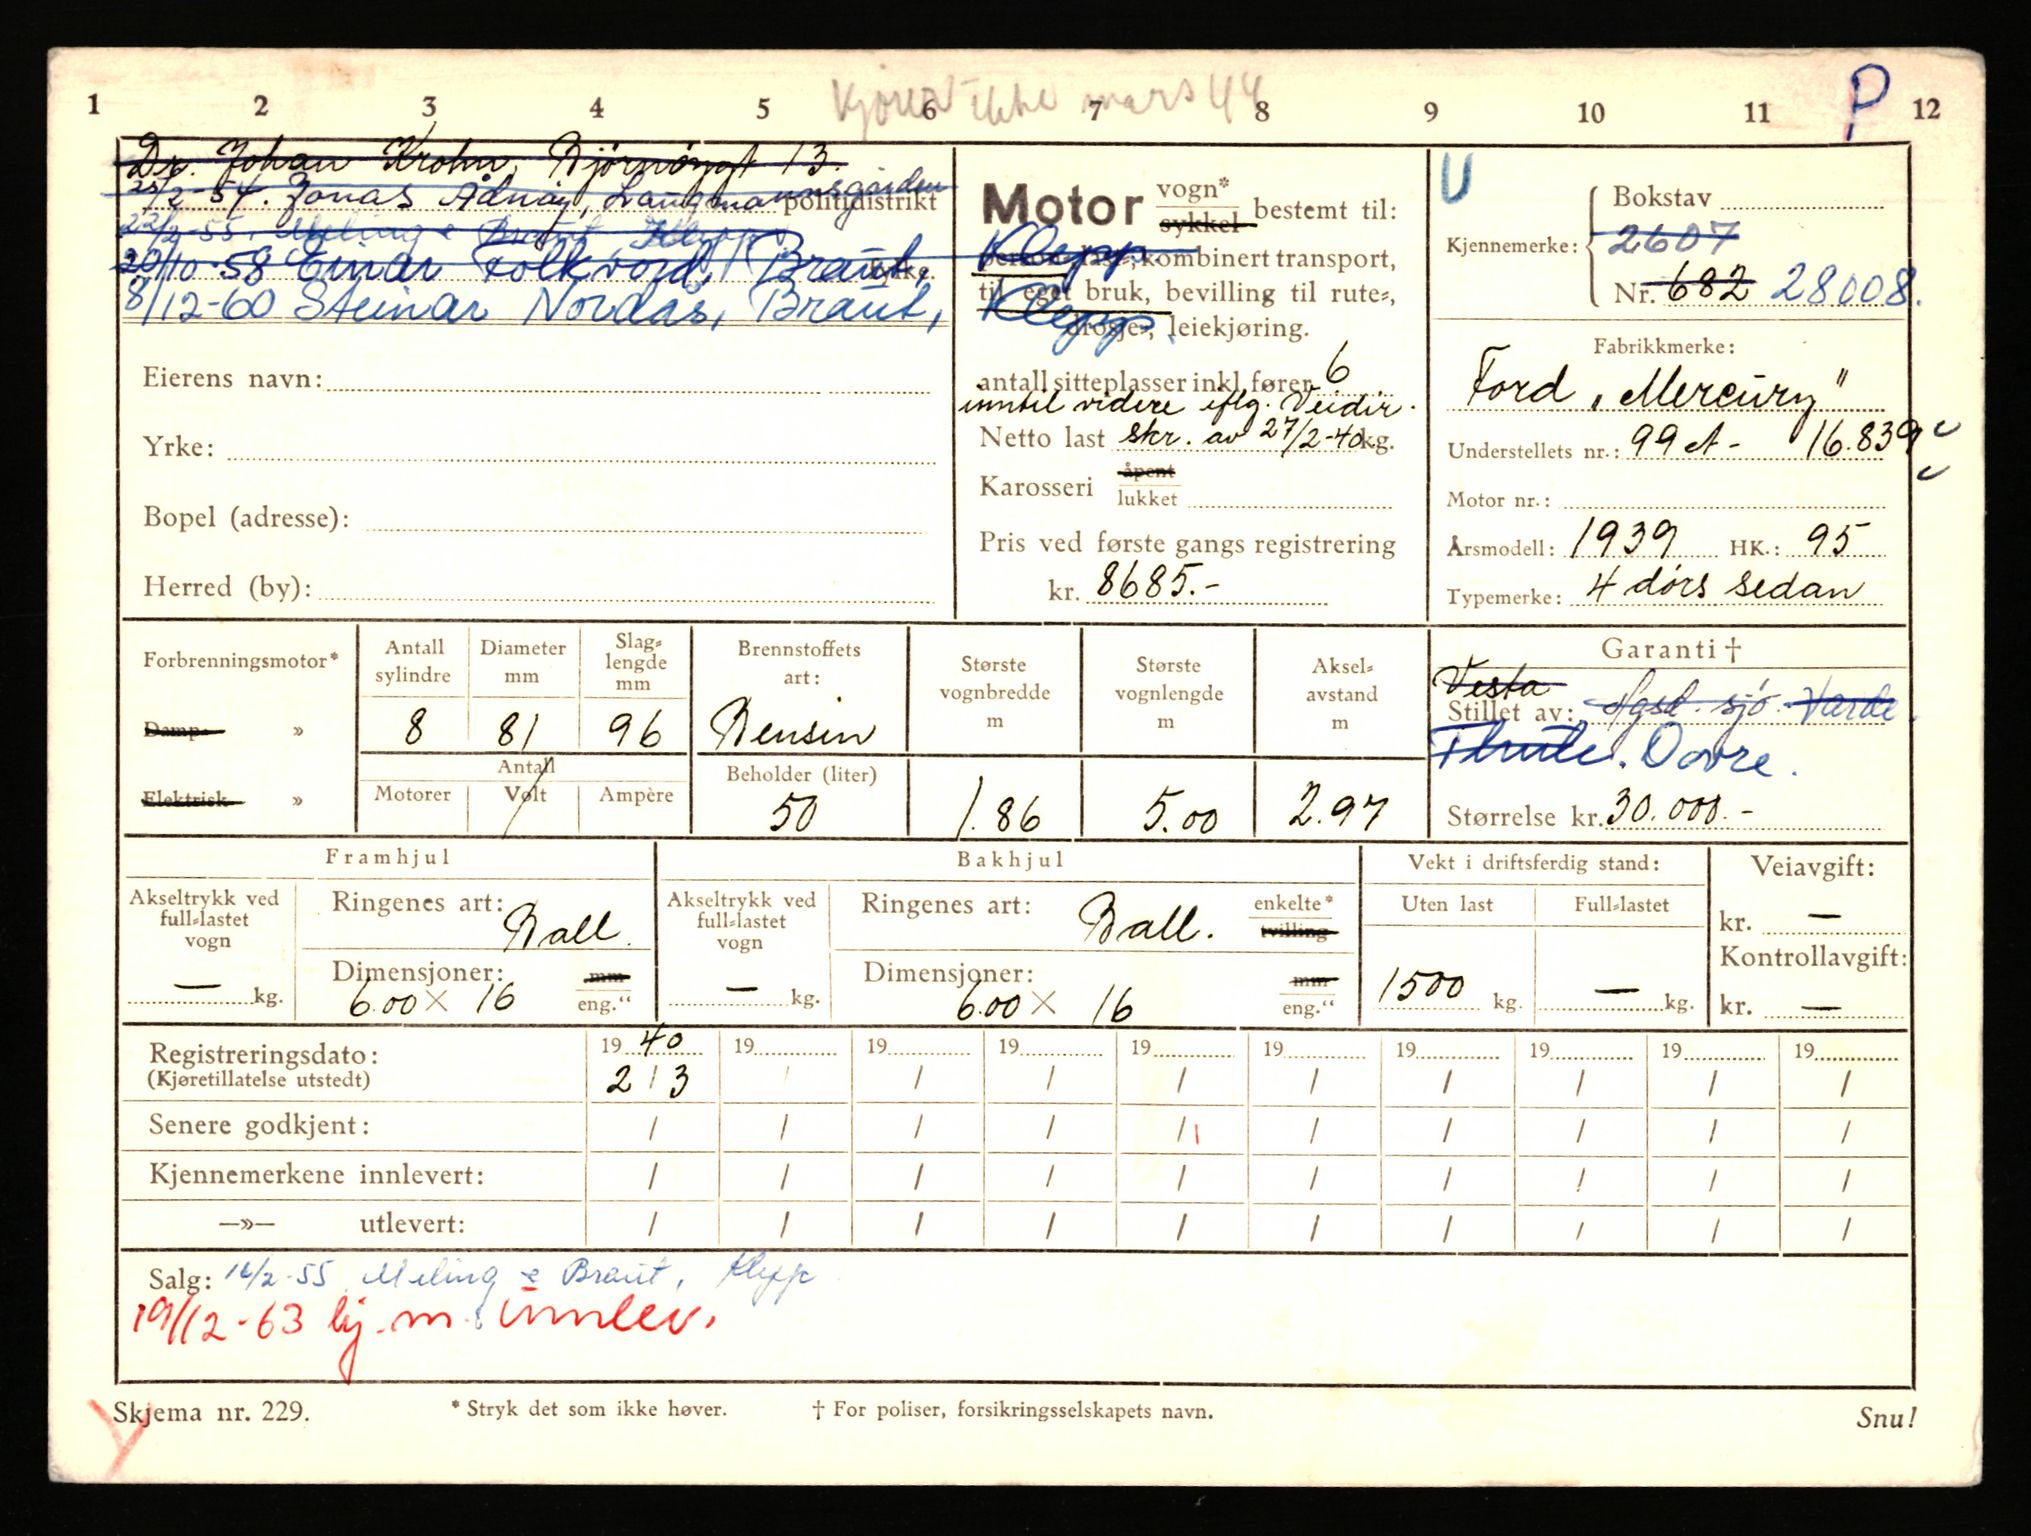 Kjører ikke mars 44
P
1 2 3 4 5 6 7 8 9 10 11 12
Dr. Johan Krohn, Bjørnöygt 13.
25/2-54. Jonas Ådnøy, Langmannsgården
politidistrikt
22/2-55. Meling & Braut Klepp
20/10-58 Einar Folkvord, Braut, Klepp
8/12-60 Steinar Nordås, Braut, Klepp.
Eierens navn:
Yrke:
Bopel (adresse):
Herred (by):
Motor vogn* sykkel bestemt til:
kombinert transport,
til eget bruk, bevilling til rute-,
drosje-, leiekjøring.
antall sitteplasser inkl. fører 6
inntil videre iflg. Veidir.
Netto last skr. av 27/2-40 kg.
Karosseri åpent lukket
Pris ved første gangs registrering
kr. 8685.-
U
Bokstav
Kjennemerke: 2607
Nr. 682 28008.
Fabrikkmerke:
Ford „Mercury"
Understellets nr.: 99 A - 16.839
Motor nr.:
Årsmodell: 1939 HK.: 95
Typemerke: 4 dørs sedan
Forbrenningsmotor*
Damp- »
Elektrisk »
Antall sylindre
8
Diameter mm
81
Slag-lengde mm
96
Antall
Motorer Volt Ampère
Brennstoffets art:
Bensin
Beholder (liter)
50
Største vognbredde m
1.86
Største vognlengde m
5.00
Aksel-avstand m
2.97
Garanti †
Vesta
Stillet av: Agd. sjø Varde.
Thule. Dovre.
Størrelse kr. 30.000.-
Framhjul
Akseltrykk ved full-lastet vogn
— kg.
Ringenes art: Ball.
Dimensjoner: mm
6.00 × 16 eng."
Bakhjul
Akseltrykk ved full-lastet vogn
— kg.
Ringenes art: Ball. enkelte* tvilling
Dimensjoner: mm
6.00 × 16 eng."
Vekt i driftsferdig stand:
Uten last Full-lastet
1500 kg. — kg.
Veiavgift:
kr. —
Kontrollavgift:
kr. —
Registreringsdato: 19 40 19 19 19 19 19 19 19 19 19
(Kjøretillatelse utstedt) 2 / 3 / / / / / / / / /
Senere godkjent: / / / / / / / / / /
Kjennemerkene innlevert: / / / / / / / / / /
—»— utlevert: / / / / / / / / / /
Salg: 16/2-55 Meling & Braut, Klepp
19/12-63 kj.m. innlev.
Skjema nr. 229. * Stryk det som ikke høver. † For poliser, forsikringsselskapets navn. Snu!